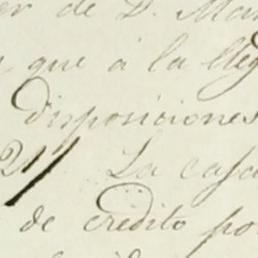 er de D. Man
que á la lleg
disposiciones
21 La casa
de crédito po